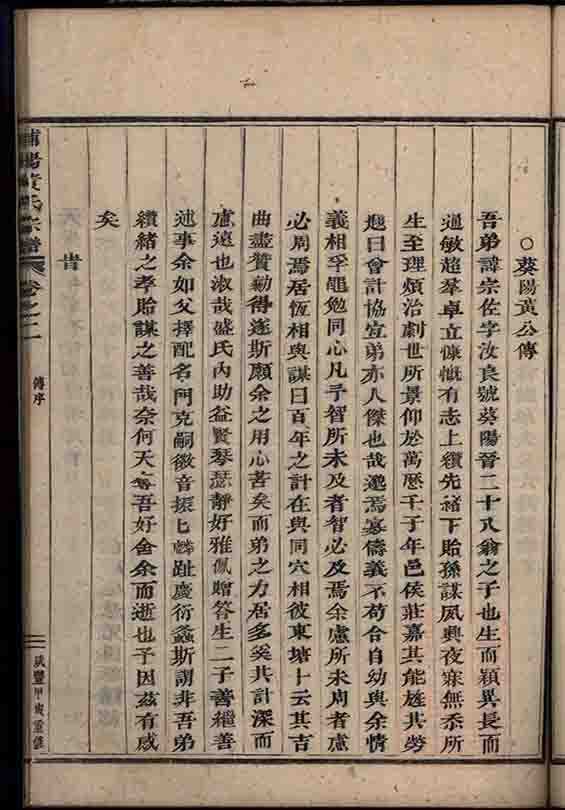 ○葵陽黃公傳
吾弟諱宗佐字汝良號葵陽晉二十八翁之子也生而穎異長而
通敏超羣卓立慷慨有志上纘先緒下貽孫謀夙興夜寐無忝所
生至理煩治劇世所景仰於萬曆壬子年邑侯莊嘉其能旌其勞
迺曰會計協宜弟亦人傑也哉邈焉寡儔義不苟合自幼與余情
義相孚黽勉同心凡予智所未及者智必及焉余慮所未周者慮
必周焉居恆相與謀曰百年之計在與同穴相彼東塘十云其吉
曲盡贊勷得遂斯願余之用心苦矣而弟之力居多奚其計深而
慮遠也淑哉盛氏內助益賢琴瑟靜好雅佩贈答生二子善繼善
述事余如父擇配名門克嗣徽音振匕麟趾慶衍螽斯謂非吾弟
纘緒之孝貽謀之善哉奈何天奪吾好舍余而逝也予因茲有感
矣
旹
浦陽黃氏宗譜
卷之二
傳序
咸豐甲寅重修